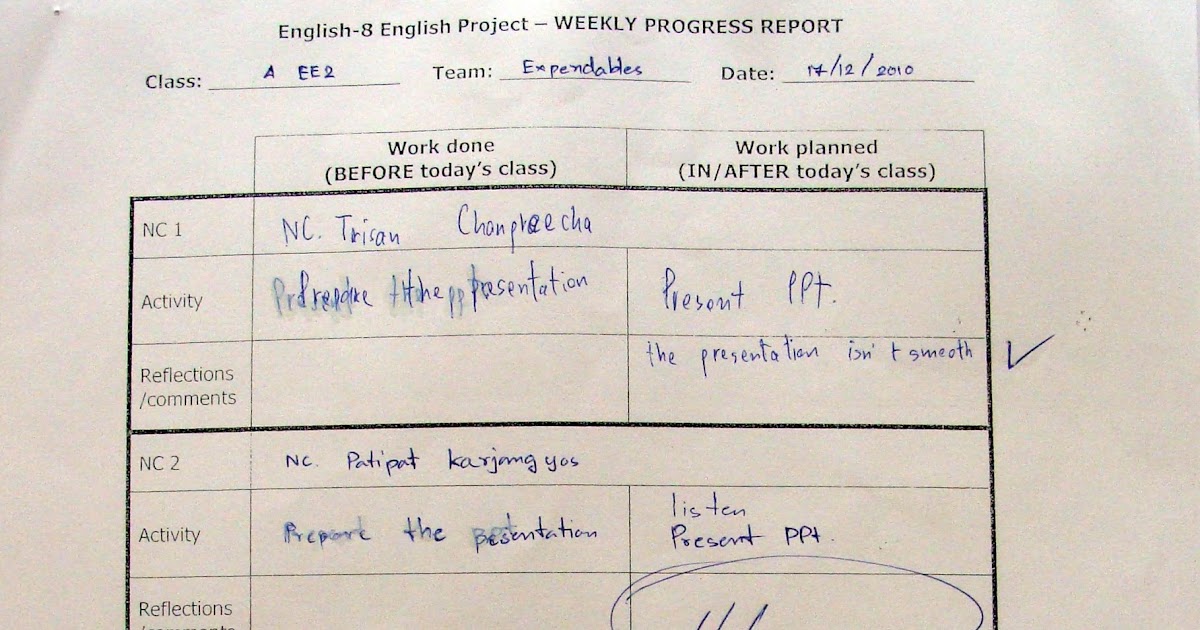 English-8 English Project – WEEKLY PROGRESS REPORT
Class: A EE2 Team: Expendables Date: 17/12/2010
Work done Work planned
(BEFORE today's class) (IN/AFTER today's class)
NC 1 NC. Trisan Chanpreecha
Activity Prepare the presentation Present PPt.
the presentation isn't smooth
Reflections
/comments
NC 2 NC. Patipat karjangyos
listen
Activity Prepare the presentation Present PPt.
Reflections
/comments